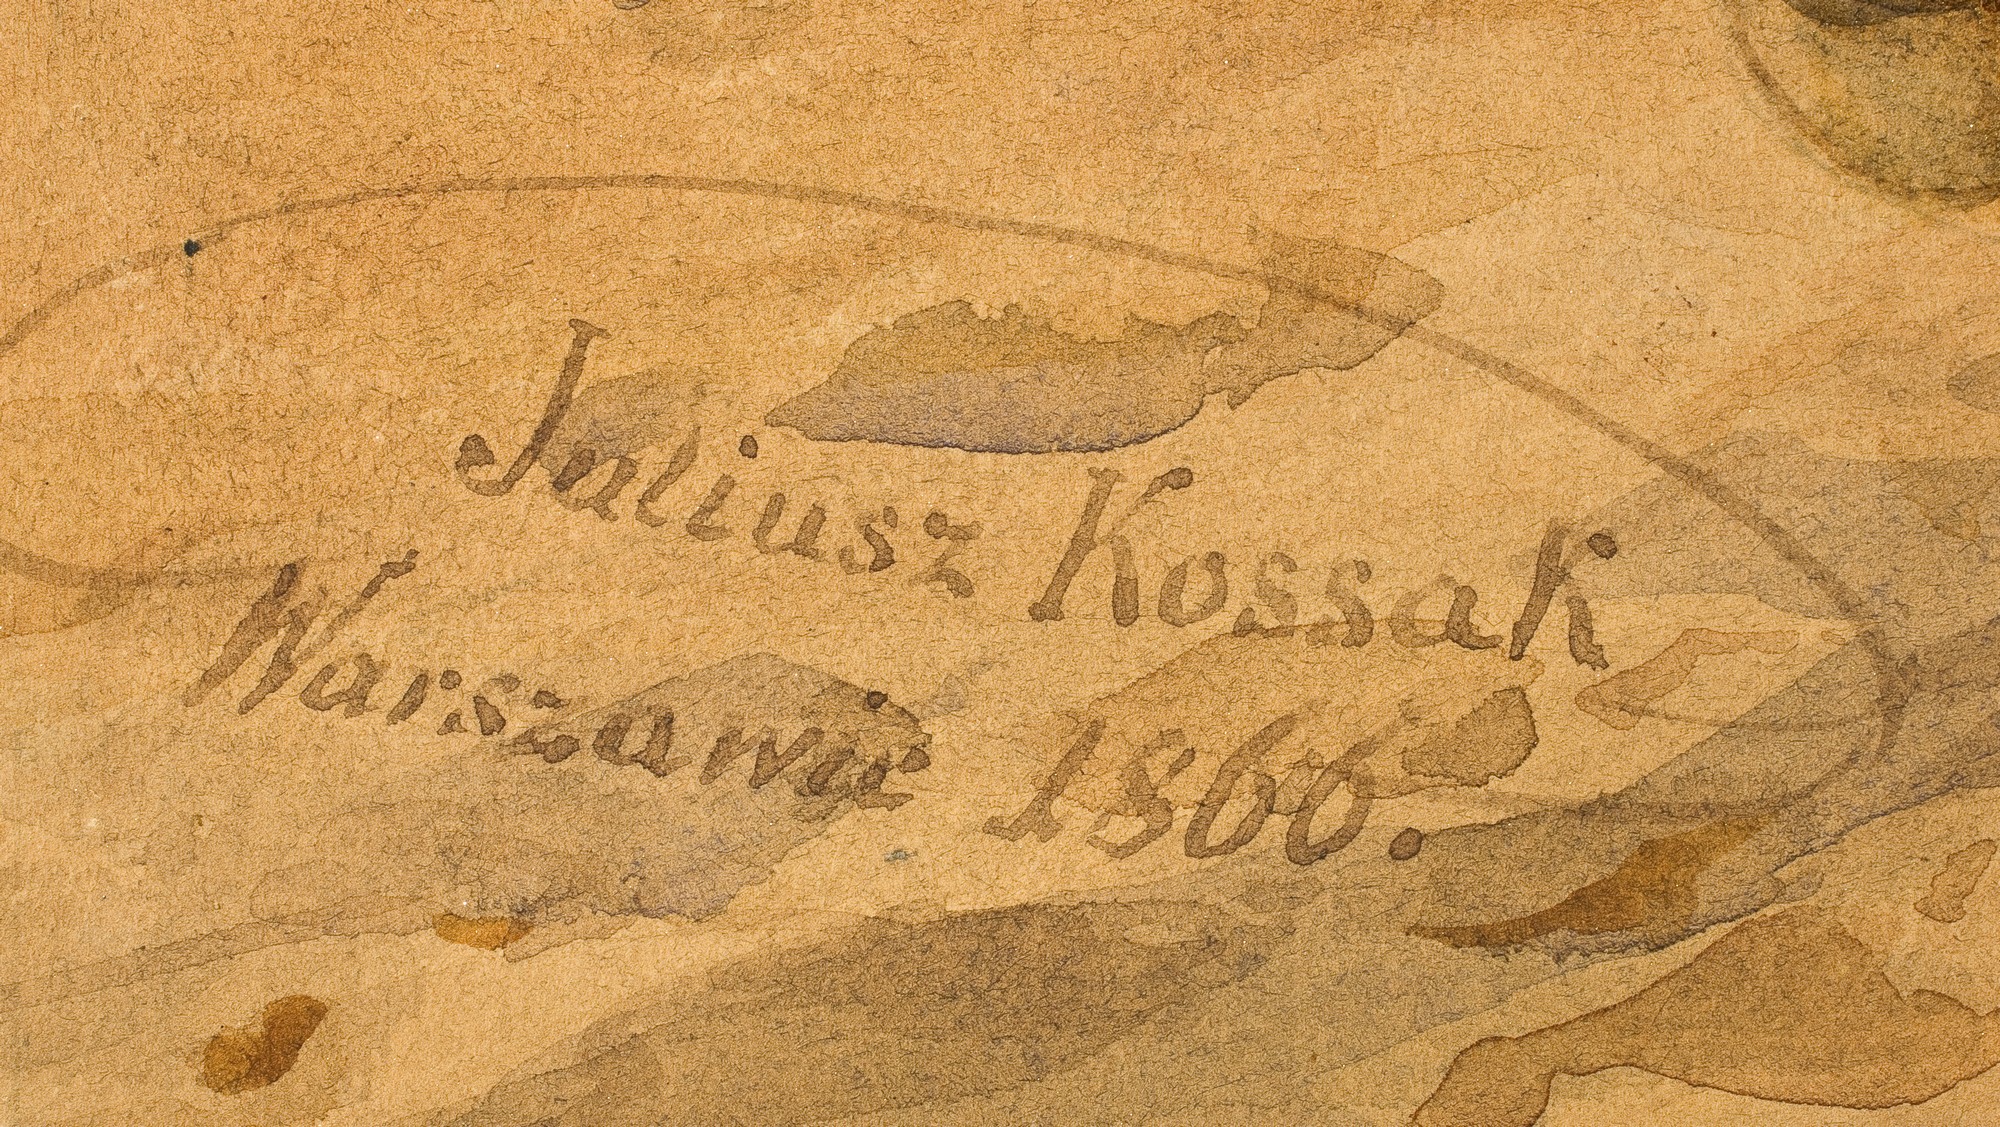 Juliusz Kossak
Warszawie 1866.